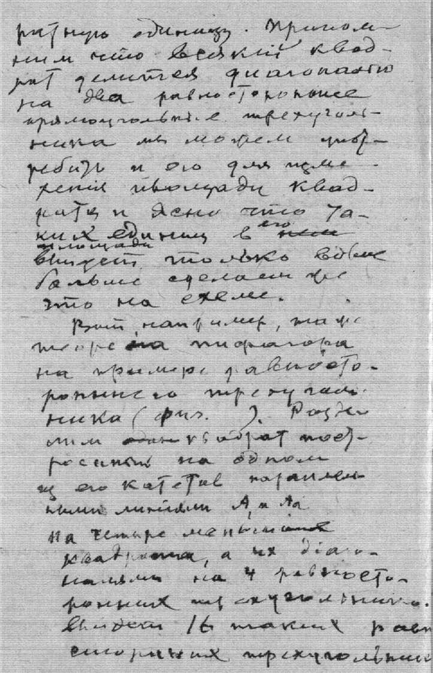 ратную единицу. Припом-
ним что всякий квад-
рат делится диагональю
на два равносторонные
прямоугольные треуголь-
ника мы можем упот-
ребить и его для изме-
рения площади квад-
рата и ясно что та-
ких единиц в его
площади
выйдет только вдвое
больше сделаем
это на схеме.
Вот, например,
теорема пифагора
на примере равносто-
роннего треуголь-
ника (фиг. ). Разде
лим квадрат пост-
роенный на одном
из его катетов параллель
ными линиями
на четыре меньшие
квадрата, а их диаго-
налями на 4 равносто-
ронних треугольника.
Выйдет 16 таких равн
сторонних треугольник